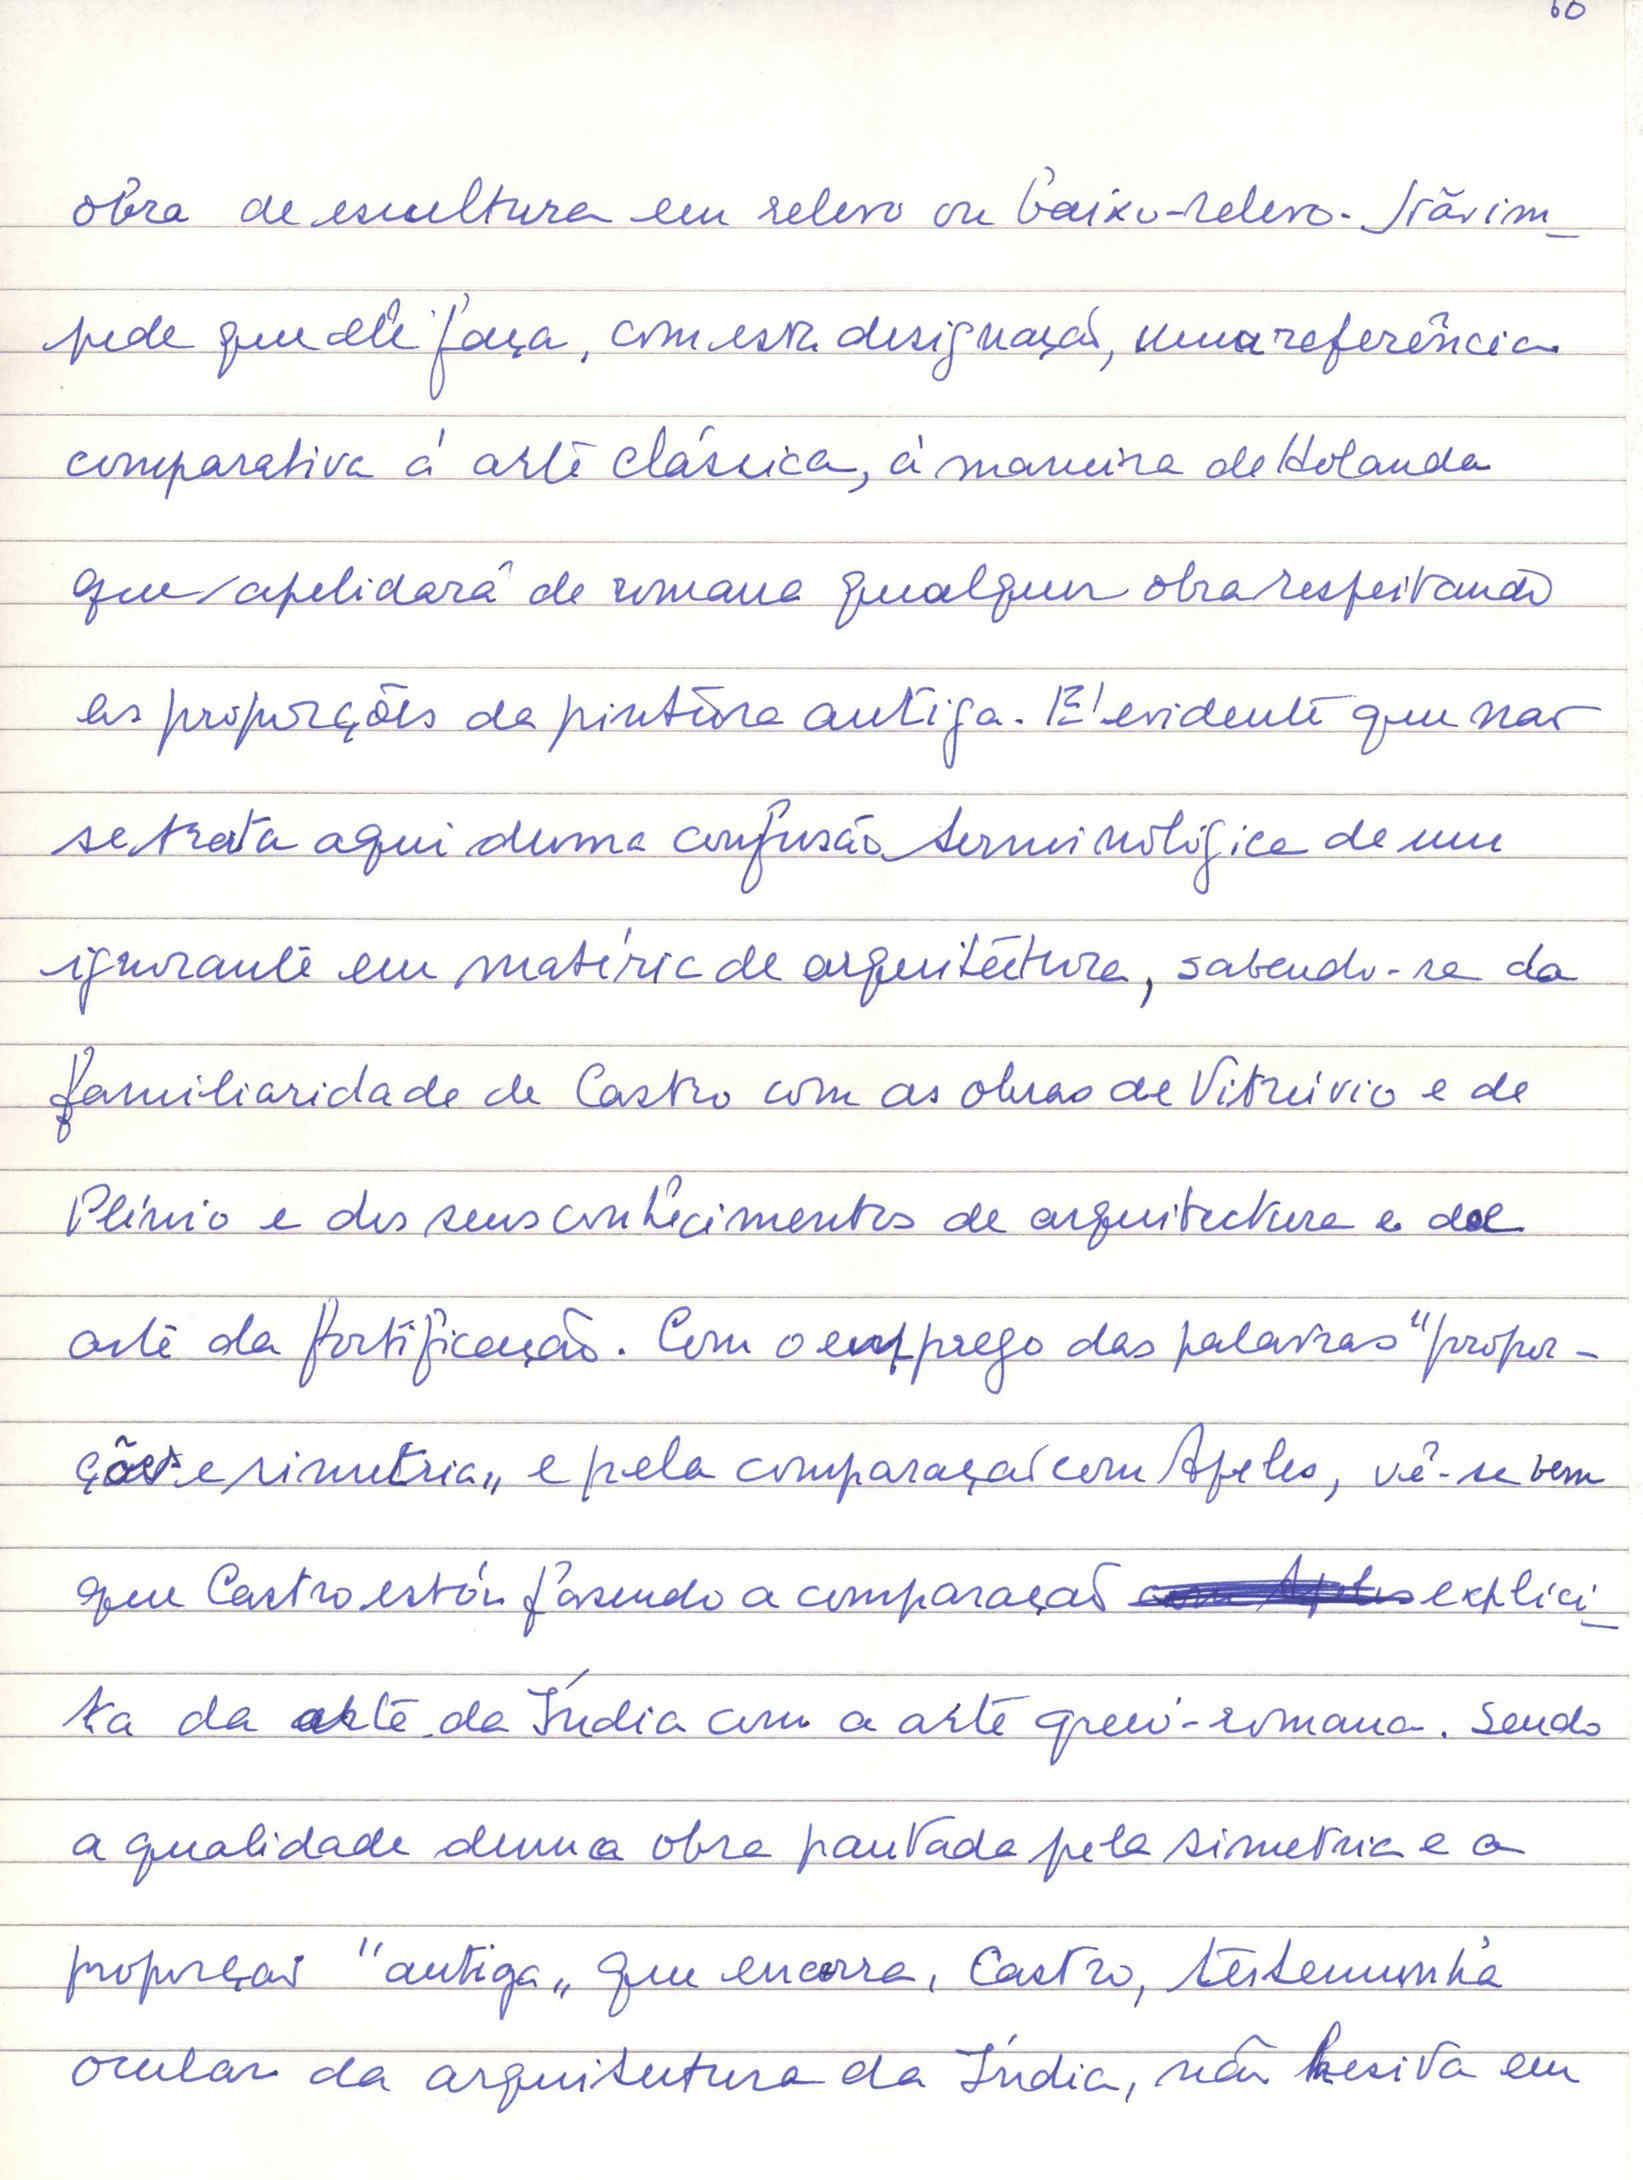 60
obra de escultura em relevo ou baixo-relevo. Não im_
pede que ele faça, com esta designação, uma referência
comparativa à arte clássica, à maneira de Holanda
que apelidará de romana qualquer obra respeitando
as proporções da pintura antiga. É evidente que não
se trata aqui duma confusão terminológica de um
ignorante em matéria de arquitectura, sabendo-se da
familiaridade de Castro com as obras de Vitrúvio e de
Plínio e dos seus conhecimentos de arquitectura e de
arte da fortificação. Com o emprego das palavras "propor-
ções e simetria„ e pela comparação com Apeles, vê-se bem
que Castro está fazendo a comparação com Apeles explici_
ta da arte da Índia com a arte greco-romana. Sendo
a qualidade duma obra pautada pela simetria e a
proporção "antiga„ que encerra, Castro, testemunha
ocular da arquitetura da Índia, não hesita em